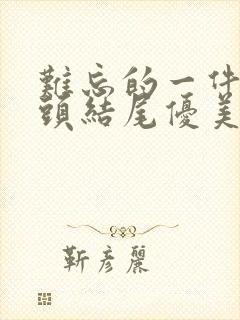 難忘的一件
頭結尾優美
靳彥麗